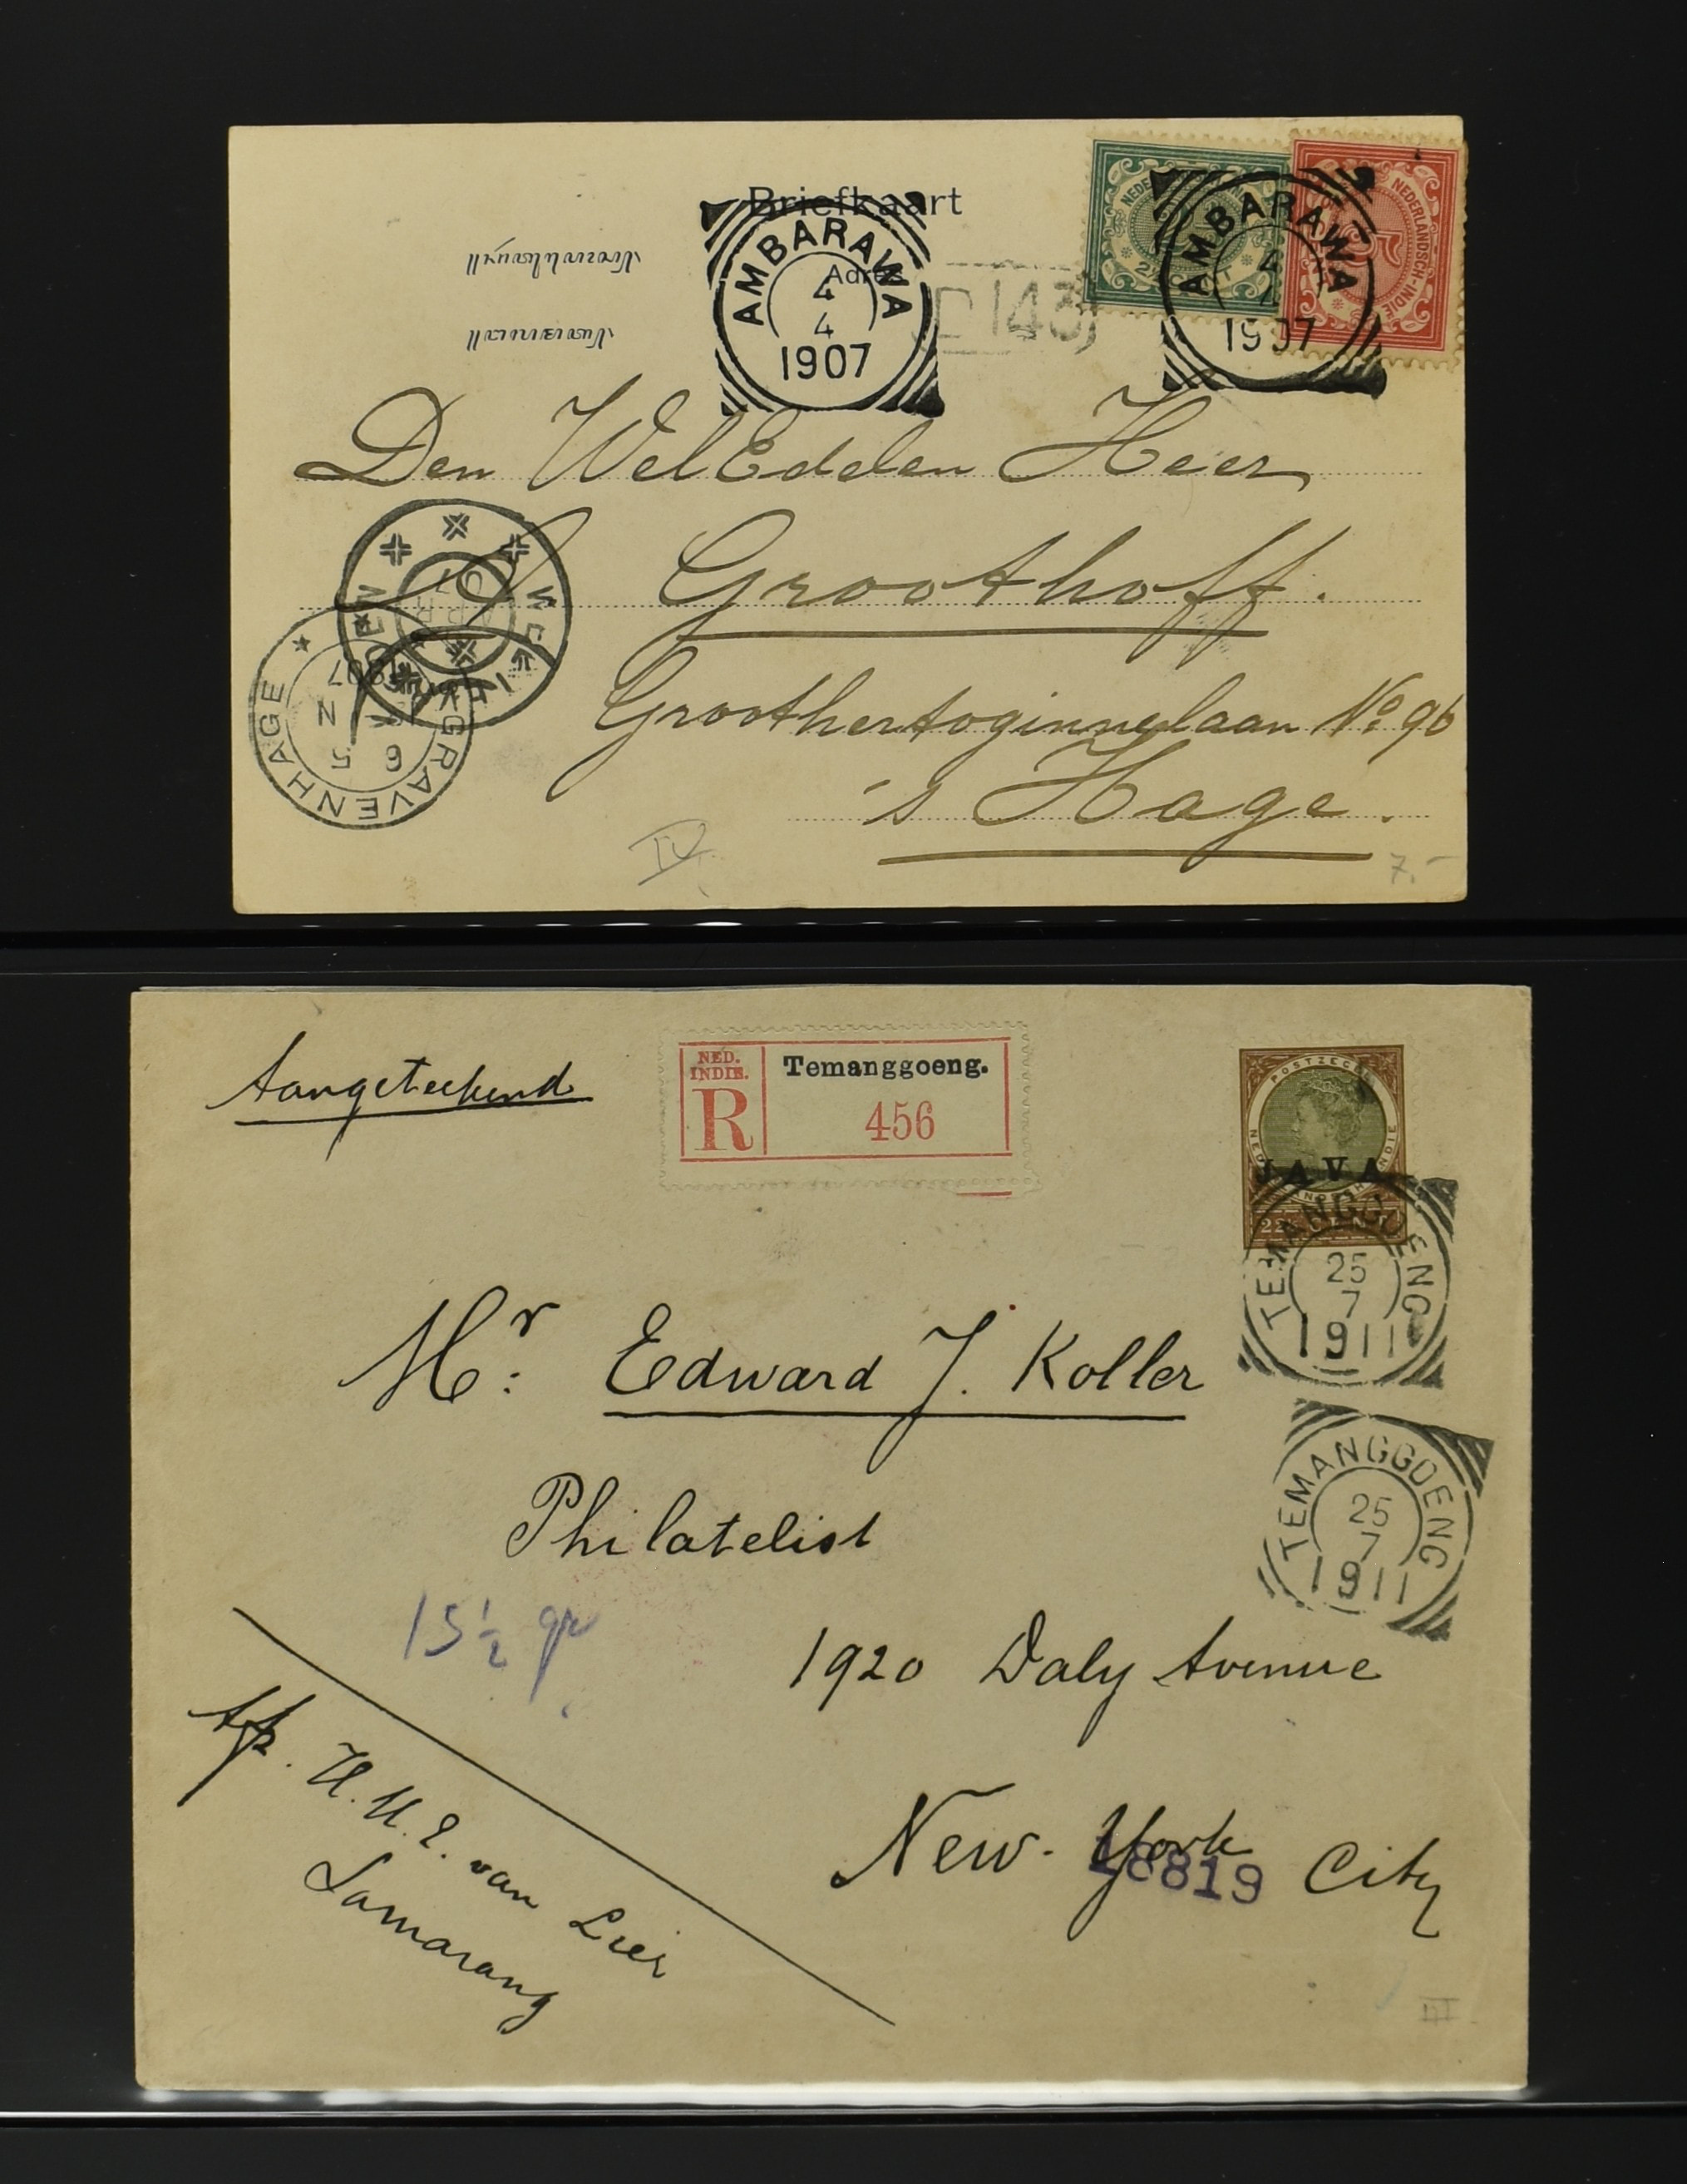 Briefkaart
Adres
AMBARAWA
4
4
1907
143
NEDERLANDSCH-INDIE
AMBARAWA
4
4
1907
Den WelEdelen Heer
Groothoff.
Groothertoginnelaan No 96
's Hage.
WELTEVREDEN
APR
07
'S GRAVENHAGE
6 5
N
1907
IV
7.-
Aangeteekend
NED. INDIE.
R
Temanggoeng.
456
POSTZEGEL
NEDERLANDSCH-INDIE
JAVA
22½ CENT
TEMANGGOENG
25
7
1911
TEMANGGOENG
25
7
1911
Mr: Edward J. Koller
Philatelist
15½ gr
1920 Daly Avenue
New-York City
18819
Afz. H.H.E. van Lier
Samarang
III